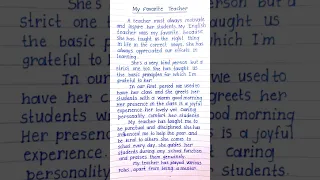 My Favorite Teacher
A teacher must always motivate
and inspire her students. My English
teacher was my favorite because
She has taught us the right thing
in life at the correct ways. She has
always appreciated our efforts in
learning.
She's a very kind person but a
strict one too. She has taught us
the basic principles for which I'm
grateful to her.
In our first period we used to
have her class and she greets her
students with a warm good morning
Her presence of the class is a joyful
experience, her lovely yet caring
personality. Comfort her students
My teacher has taught me to
be punctual and disciplined she has
influenced me to help the poor and
be kind to others. She comes to
school every day. She guides her
students during any school function
and praises them genuinely.
My teacher has played various
roles, apart from being a mentor.
She's
Strict o
the basic
grateful
In our
have her
students w
Her presence
experience,
personality
but a
ght us
which I'm
used to
greets her
good morning
is a joyful
caring